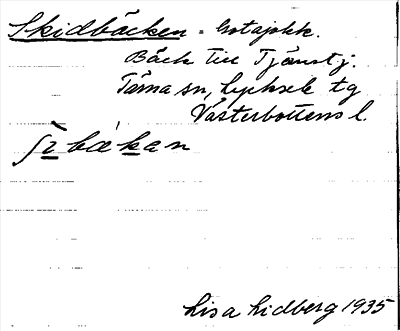 Skidbäcken = Gotajokk.
Bäck till Tjånetj.
Tärna sn, Lycksele tg
Västerbottens l.
ʃìbákan
Lisa Lidberg 1935